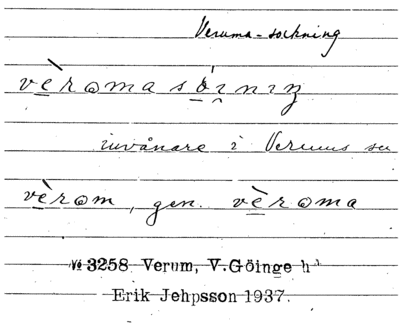 Veruma-sockning
vèromasóiniz
invånare i Verums sn
vèrom, gen. vèroma
No 3258 Verum, V.Göinge h
Erik Jehpsson 1937.